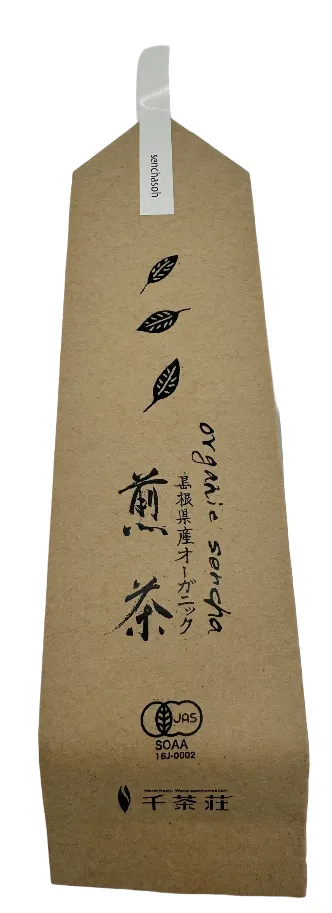 senchasoh
organic sencha
島根県産オーガニック
煎茶
JAS
SOAA
16J-0002
千茶荘